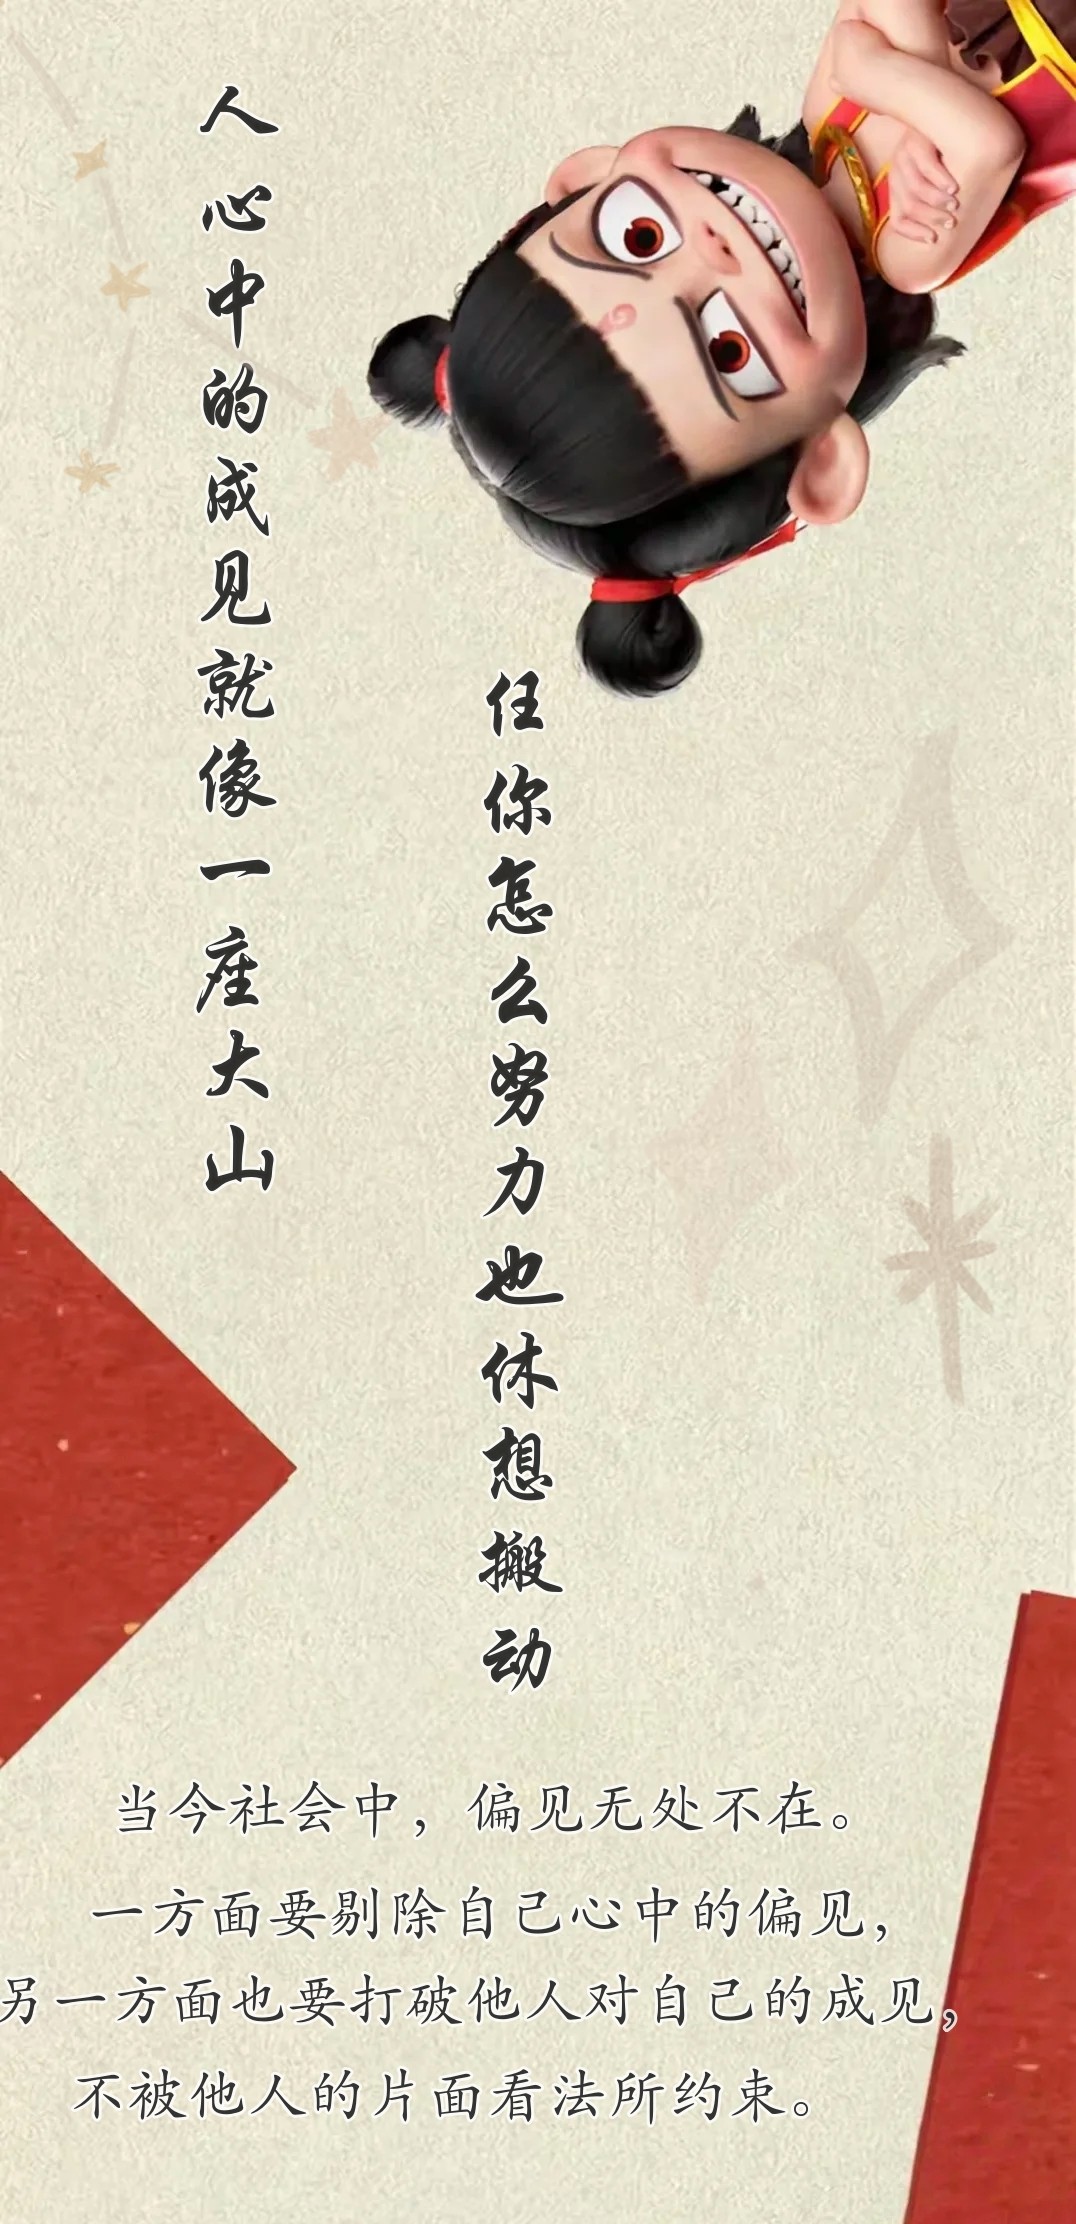 人心中的成见就像一座大山
任你怎么努力也休想搬动
当今社会中，偏见无处不在。
一方面要剔除自己心中的偏见，
另一方面也要打破他人对自己的成见，
不被他人的片面看法所约束。